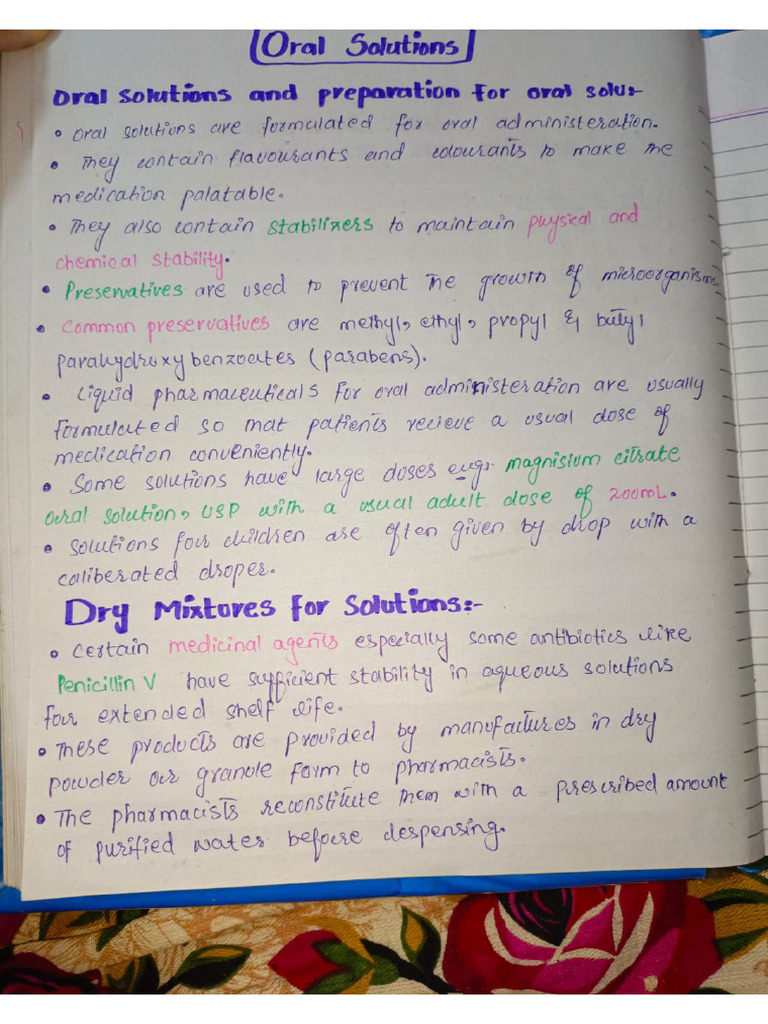 Oral Solutions
Oral solutions and preparation for oral solu:-
• Oral solutions are formulated for oral administeration.
• They contain flavourants and colourants to make the
medication palatable.
• They also contain stabilizers to maintain physical and
chemical stability.
• Preservatives are used to prevent the growth of microorganisms.
• Common preservatives are methyl, ethyl, propyl & butyl
parahydroxybenzoates (parabens).
• Liquid pharmaceuticals for oral administeration are usually
formulated so that patients recieve a usual dose of
medication conveniently.
• Some solutions have large doses e.g. magnisium citrate
oral solution, USP with a usual adult dose of 200mL.
• Solutions for children are often given by drop with a
caliberated droper.
Dry Mixtures for Solutions:-
• Certain medicinal agents especially some antibiotics like
Penicillin V have sufficient stability in aqueous solutions
for extended shelf life.
• These products are provided by manufactures in dry
powder or granule form to pharmacists.
• The pharmacists reconstitute them with a prescribed amount
of purified water before despensing.